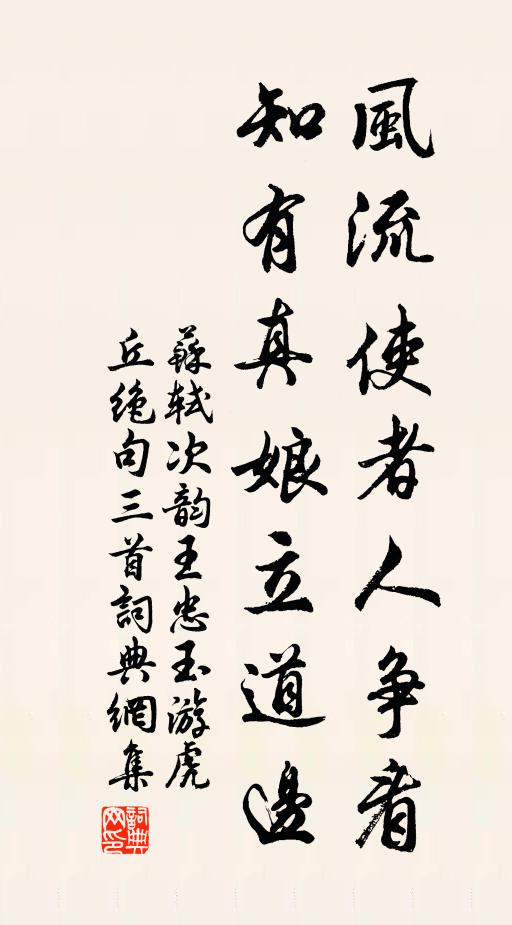 風流使者人争看
知有真娘立道邊
蘇軾次韵王忠玉游虎
丘絶句三首詞典網集
詞典
网印